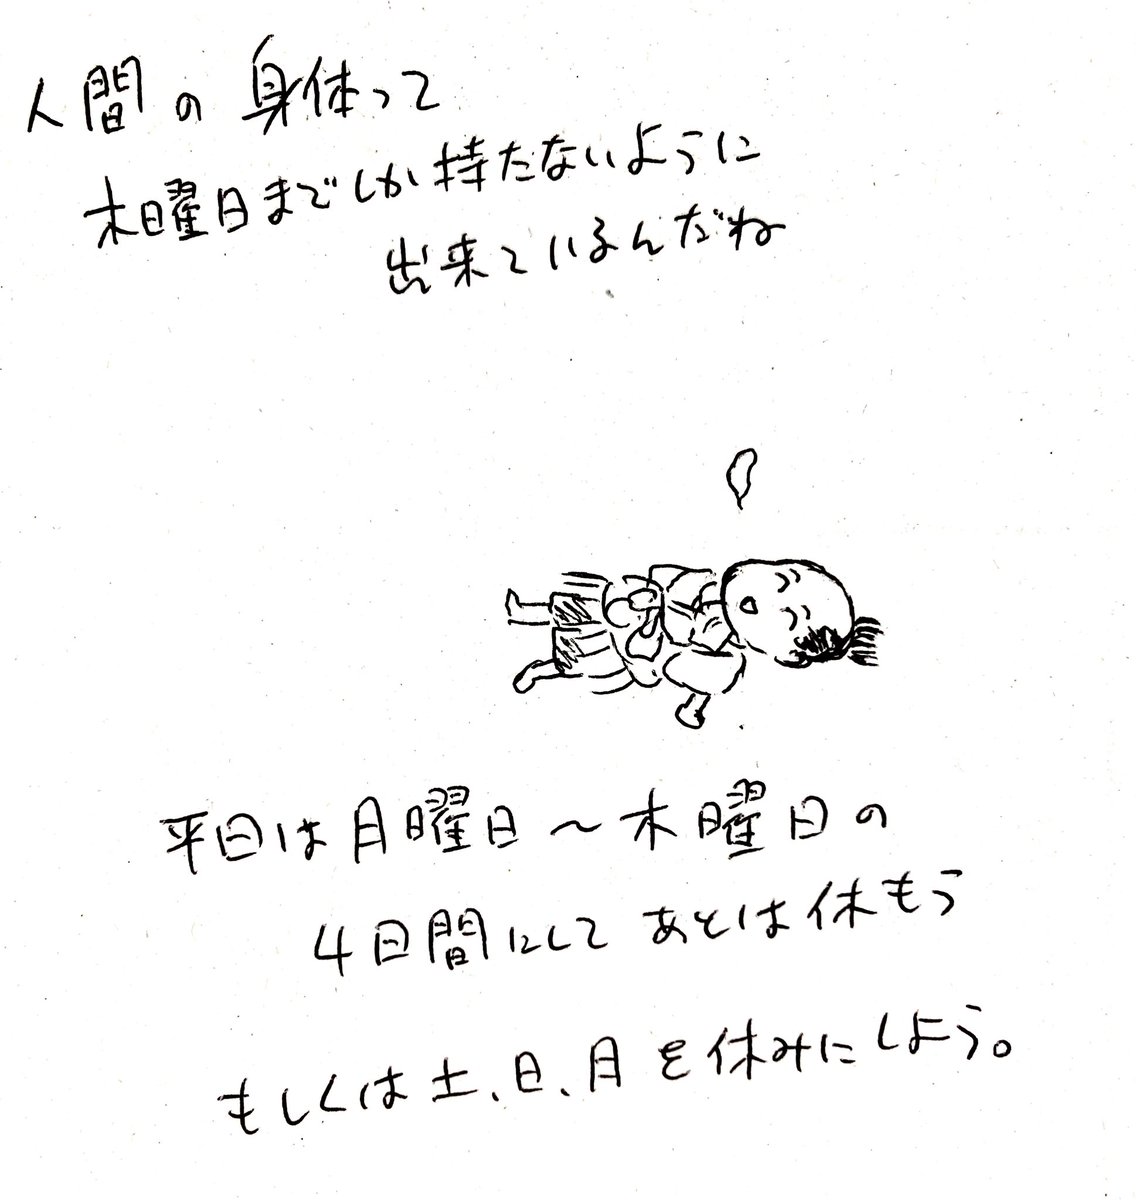 人間の身体って
木曜日までしか持たないように
出来ているんだね
平日は月曜日〜木曜日の
4日間にしてあとは休もう
もしくは土、日、月を休みにしよう。